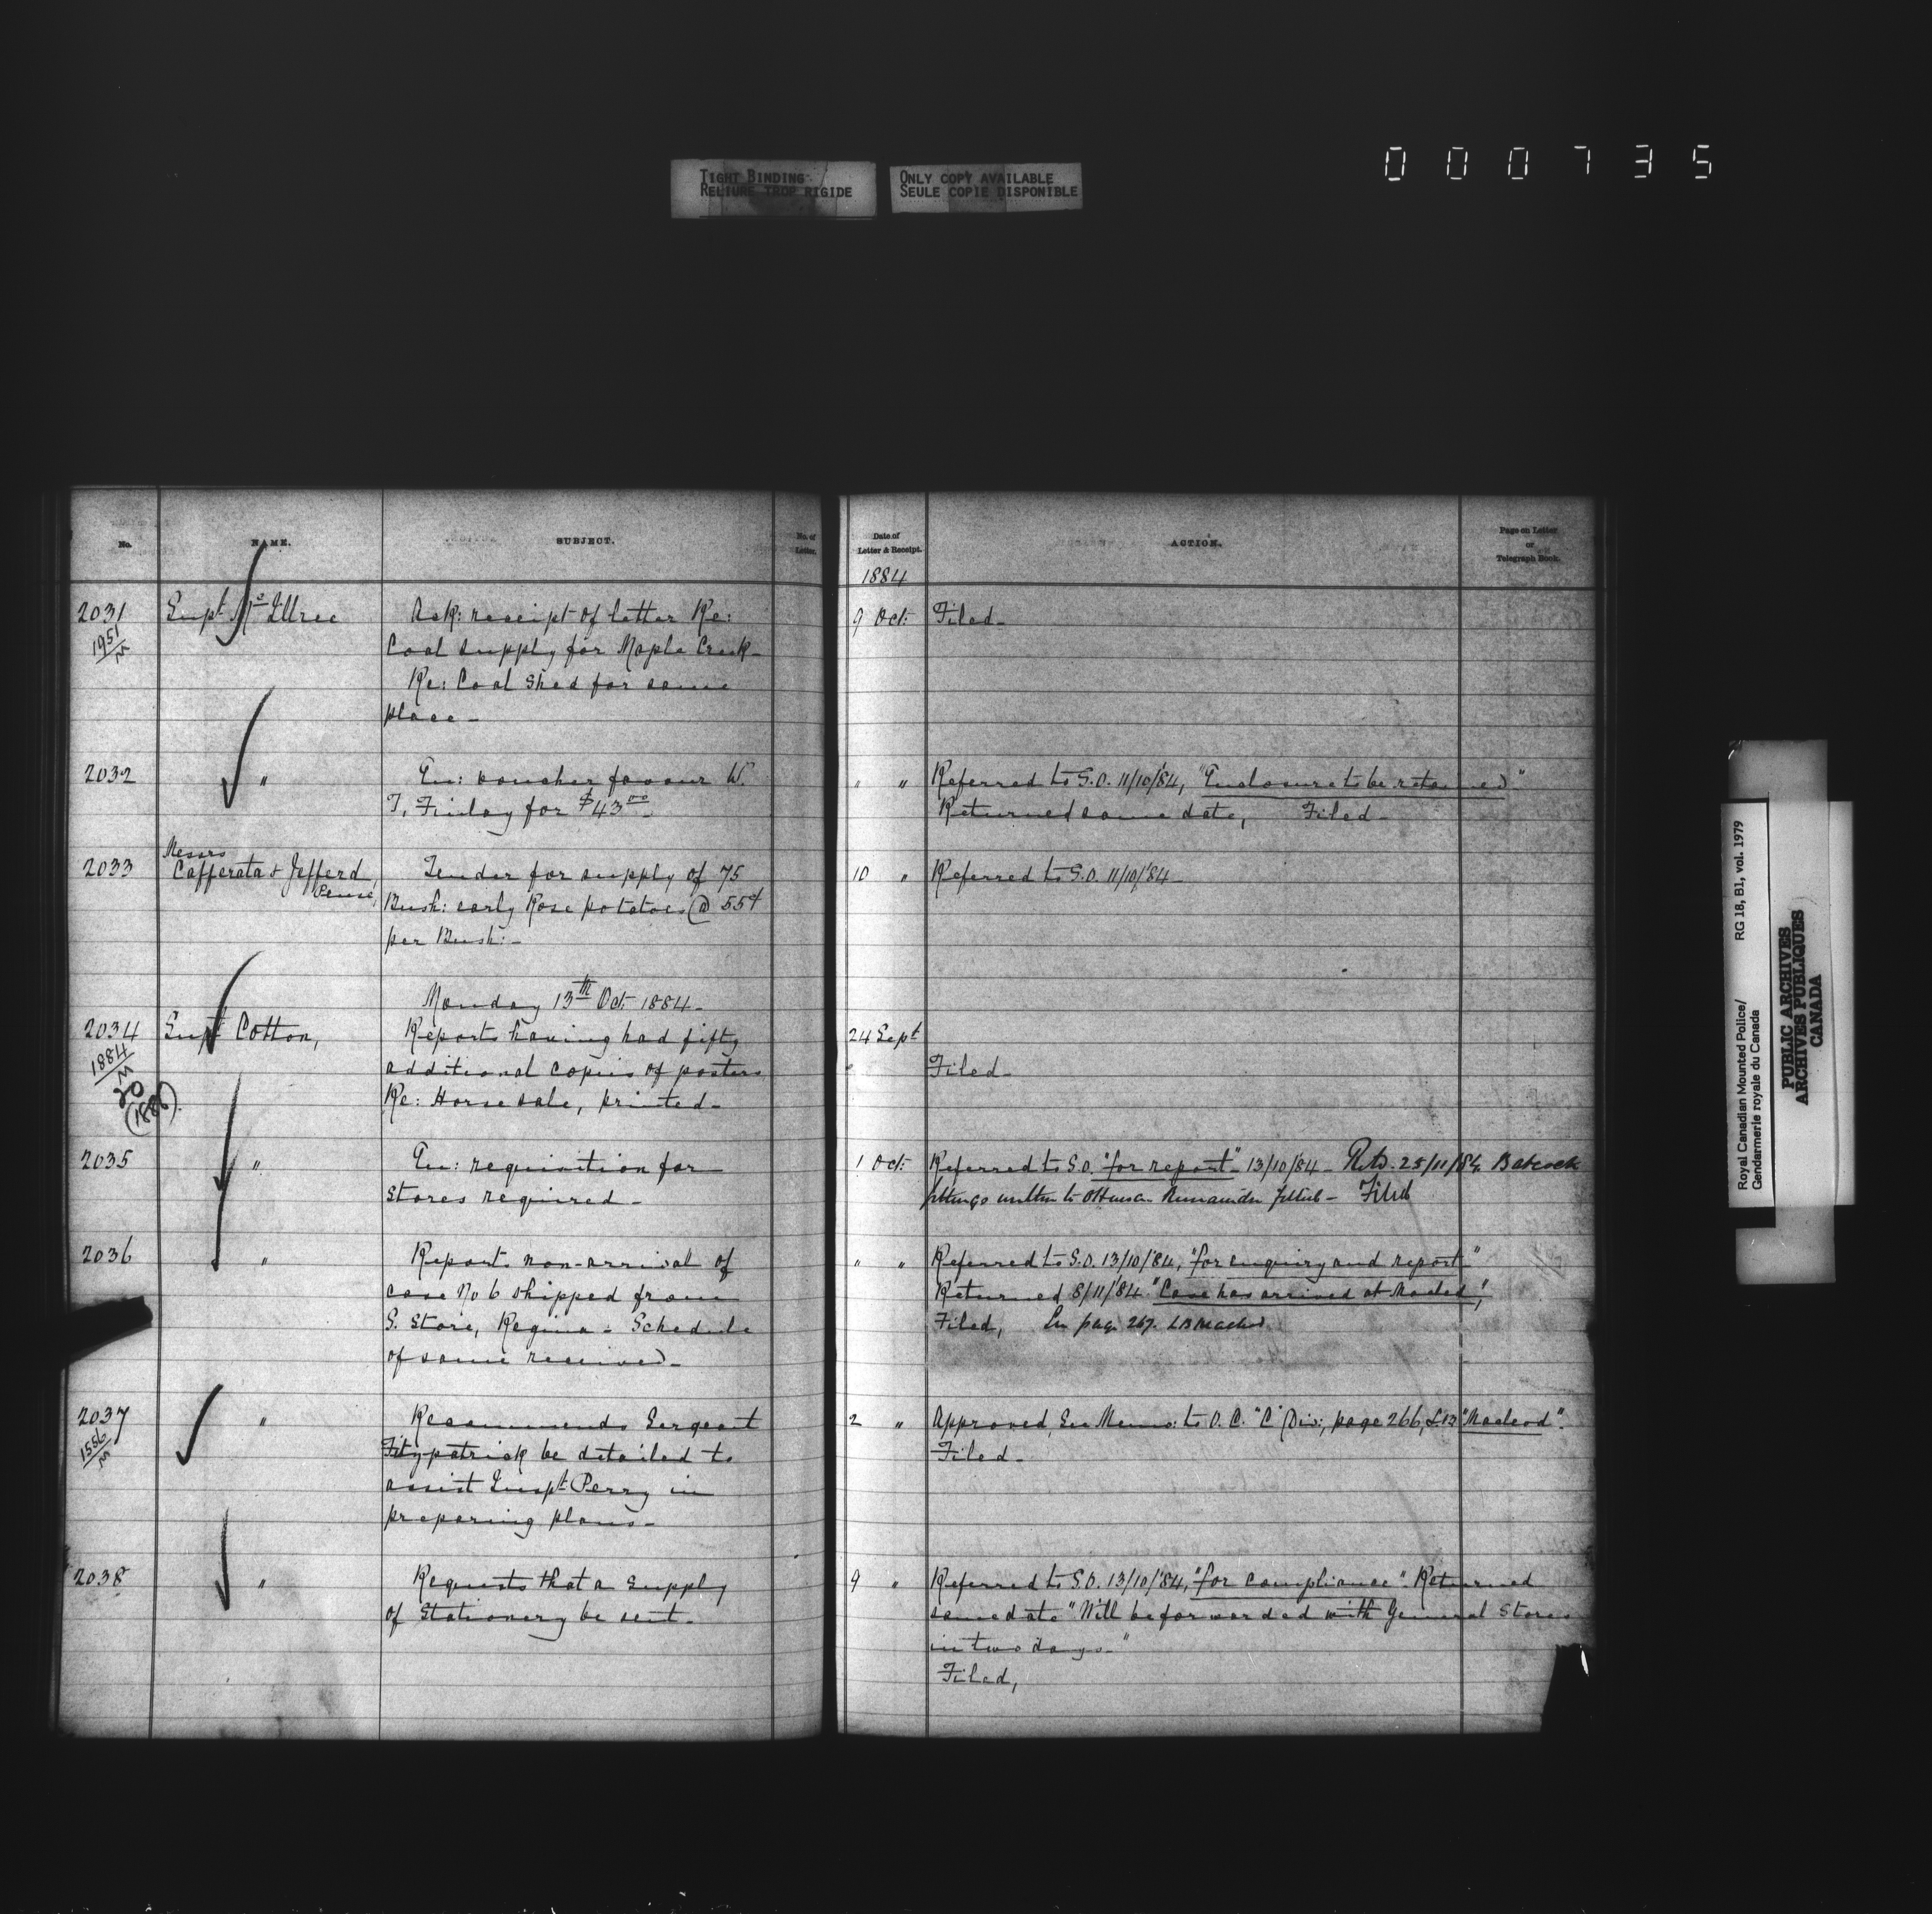 000735
TIGHT BINDING
RELIURE TROP RIGIDE
ONLY COPY AVAILABLE
SEULE COPIE DISPONIBLE
No.
NAME.
SUBJECT.
No. of
Letter.
Date of
Letter & Receipt.
ACTION.
Page on Letter
or
Telegraph Book.
1884
2031
1951
M
Supt. McIllree
Ack: receipt of letter Re:
Coal supply for Maple Creek-
Re: Coal Shed for same
place-
9 Oct:
Filed-
2032
"
En: voucher favour W.
T. Finlay for $43.00-
" "
Referred to S.O. 11/10/84, "Enclosure to be retained"
Returned same date, Filed-
2033
Messrs
Cafferata & Jefferd,
Pense,
Tender for supply of 75
Bush: early Rose potatoes @ 55¢
per Bush:-
10 "
Referred to S.O. 11/10/84-
Monday 13th Oct. 1884-
2034
1884
M
20
(1886)
Supt Cotton,
Reports having had fifty
additional copies of posters
Re: Horse sale, printed-
24 Sept
"
Filed-
2035
"
En: requisition for
Stores required-
1 Oct:
Referred to S.O. "for report"- 13/10/84- Retd. 25/11/84. Babcock
fittings written to Ottawa. Remainder filled- Filed
2036
"
Reports non-arrival of
case No 6 shipped from
S. Store, Regina- Schedule
of same received-
" "
Referred to S.O. 13/10/84, "for enquiry and report-"
Returned 8/11/84. "Case has arrived at Macleod",
Filed, En page 267. LB Macleod
2037
1556
M
"
Recommends Sergeant
Fitzpatrick be detailed to
assist Inspt. Perry in
preparing plans-
2 "
Approved, En Memo: to O.C. "C" Div:, page 266, LB "Macleod".
Filed-
2038
"
Requests that a supply
of Stationery be sent-
9 "
Referred to S.O. 13/10/84, "for compliance". Returned
same date "Will be forwarded with General Stores
in two days-"
Filed,
Royal Canadian Mounted Police/
Gendarmerie royale du Canada
RG 18, B1, vol. 1979
PUBLIC ARCHIVES
ARCHIVES PUBLIQUES
CANADA